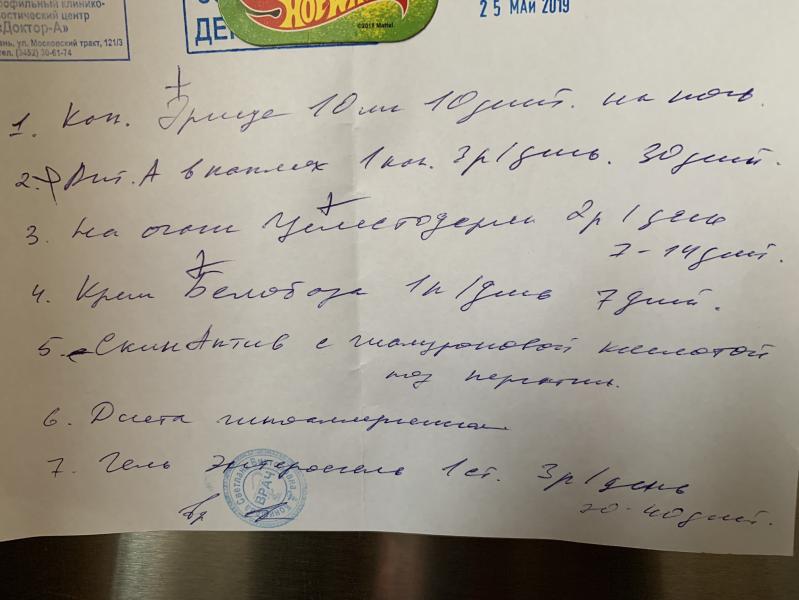 профильный клинико-
ностический центр
«Доктор-А»
ень, ул. Московский тракт, 121/3
тел. (3452) 30-61-74
ДЕ
HOT WH
©2013 Mattel.
25 МАЙ 2019
1. Кап. Эриус 10 мл 10 дней. на ночь.
2. Вит. А в каплях 1 кап. 3 р/день. 30 дней.
3. На очаги Целестодерм 2 р/день
7-14 дней.
4. Крем Белобаза 1 р/день 7 дней.
5. СкинАктив с гиалуроновой кислотой
под перчатки.
6. Диета гипоаллергенная
7. Гель Энтеросгель 1 ст. 3 р/день
дней.
Светлана
ВРАЧ
Вр